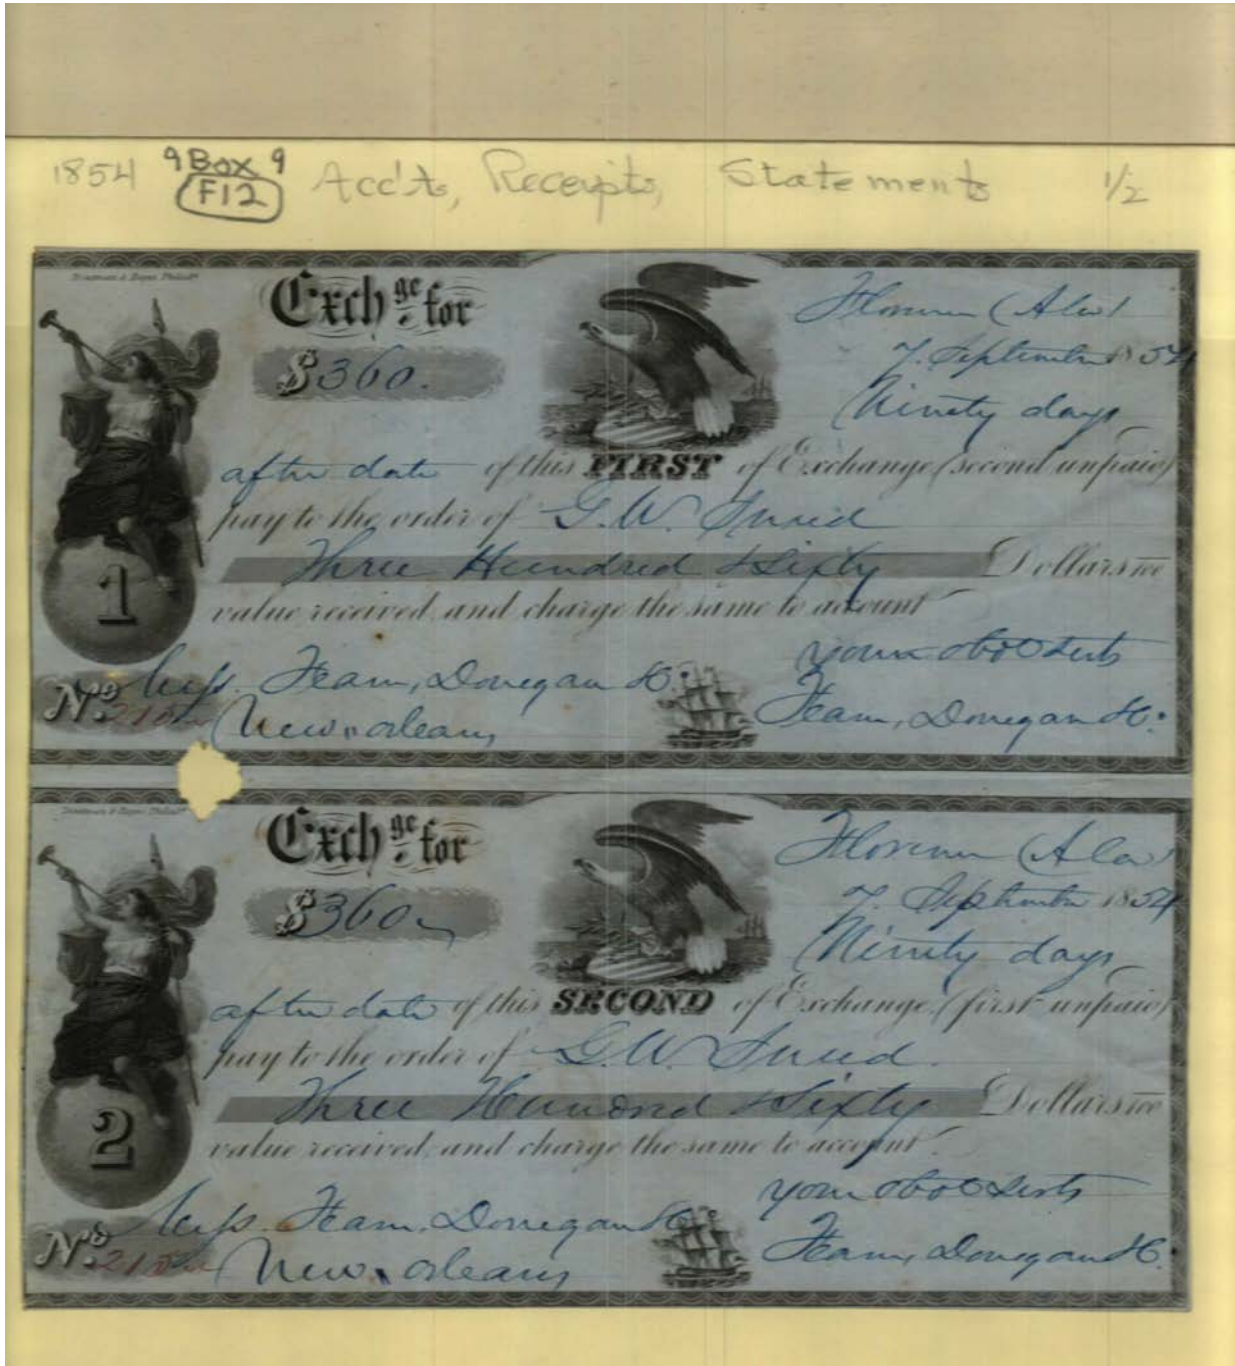 1854 9 Box 9 Acc'ts, Receipts, Statements 1/2
F12
Exchge for
$360.
Florence (Ala)
7. September 1854
Ninety days
after date of this FIRST of Exchange (second unpaid)
pay to the order of G. W. Sneed
Three Hundred & Sixty Dollars
value received and charge the same to account
your obot Servts
Messs. Fearn, Donegan & Co. Fearn, Donegan & Co.
No. New Orleans
1
Exchge for
$360
Florence (Ala)
7. September 1854
Ninety days
after date of this SECOND of Exchange (first unpaid)
pay to the order of G. W. Sneed.
Three Hundred & Sixty Dollars
value received and charge the same to account
your obot Servts
Messs. Fearn, Donegan & Co. Fearn, Donegan & Co.
No. New Orleans
2